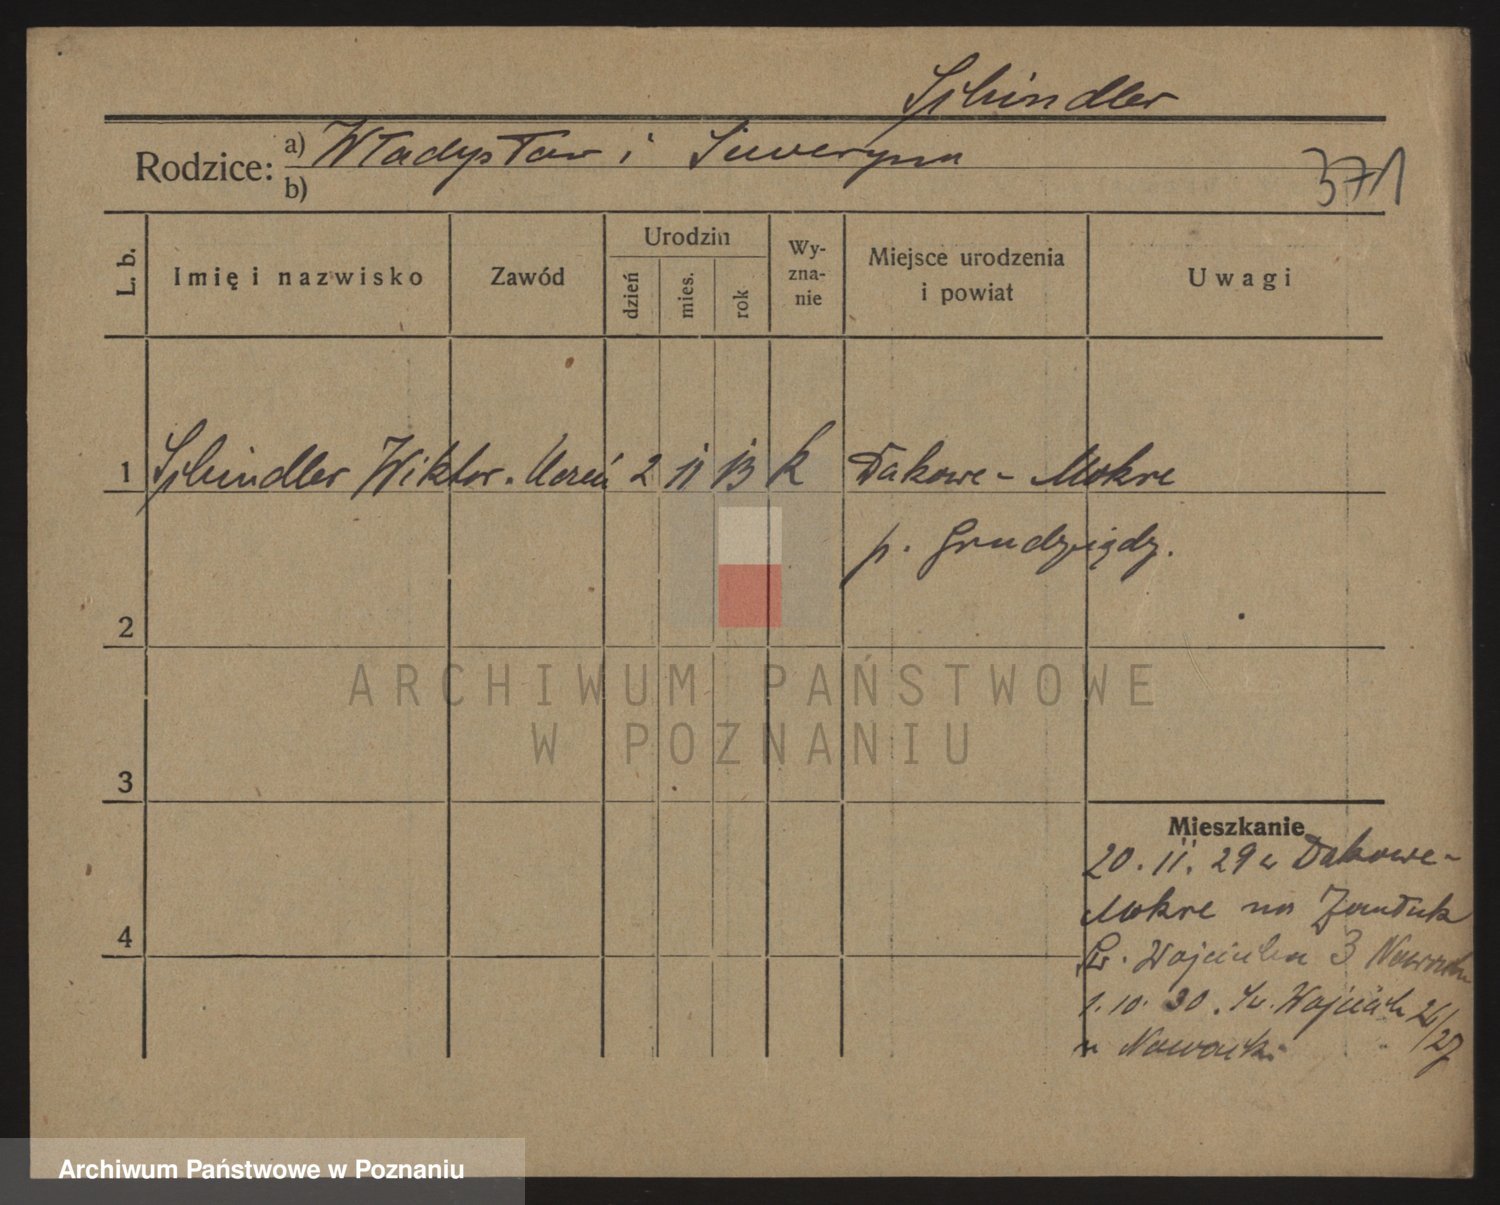 Schindler
Rodzice: a) Władysław i Seweryna
b)
371
L. b.
Imię i nazwisko
Zawód
Urodzin
dzień
mies.
rok
Wy-
zna-
nie
Miejsce urodzenia
i powiat
Uwagi
1 Schindler Wiktor. Uczeń 2 11 13 k Dakowe-Mokre
p. Grudz
2
3
4
Mieszkanie
20. 11. 29 z Dakowe-
Mokre na
Św. Wojciecha 3
1. 10. 30. Św. Wojciech 26/27
u Nowacki
ARCHIWUM PAŃSTWOWE
W POZNANIU
Archiwum Państwowe w Poznaniu